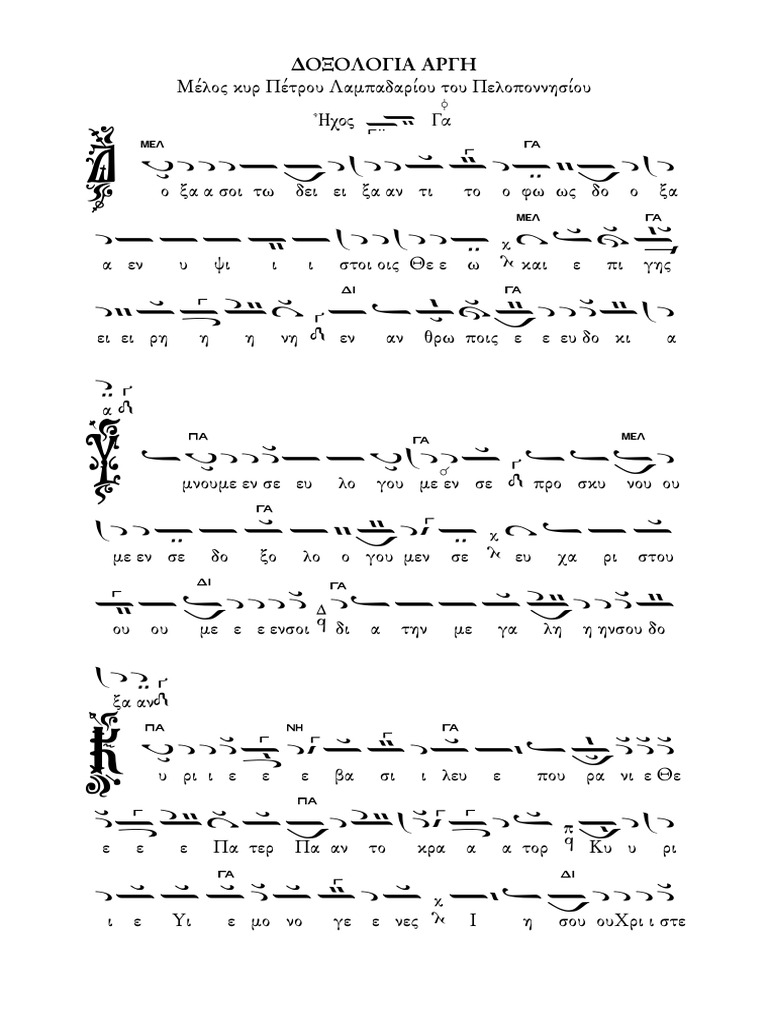 ΔΟΞΟΛΟΓΙΑ ΑΡΓΗ
Μέλος κυρ Πέτρου Λαμπαδαρίου του Πελοποννησίου
Ἦχος Γα
ΜΕΛ ΓΑ
Δ ο ξα α σοι τω δει ει ξα αν τι το ο φω ως δο ο ξα
ΜΕΛ ΓΑ
α εν υ ψι ι ι στοι οις Θε ε ω και ε πι γης
ΔΙ ΓΑ
ει ει ρη η η νη εν αν θρω ποις ε ε ευ δο κι α
α
ΠΑ ΓΑ ΜΕΛ
Υ μνουμε εν σε ευ λο γου με εν σε προ σκυ νου ου
ΓΑ
με εν σε δο ξο λο ο γου μεν σε ευ χα ρι στου
ΔΙ ΓΑ
ου ου με ε ε ενσοι δι α την με γα λη η ηνσου δο
ξα αν
ΠΑ ΝΗ ΓΑ
Κ υ ρι ι ε ε ε βα σι ι λευ ε που ρα νι ε Θε
ΠΑ
ε ε ε Πα τερ Πα αν το κρα α α τορ Κυ υ ρι
ΓΑ ΔΙ
ι ε Υι ε μο νο γε ε νες Ι η σου ουΧρι ι στε